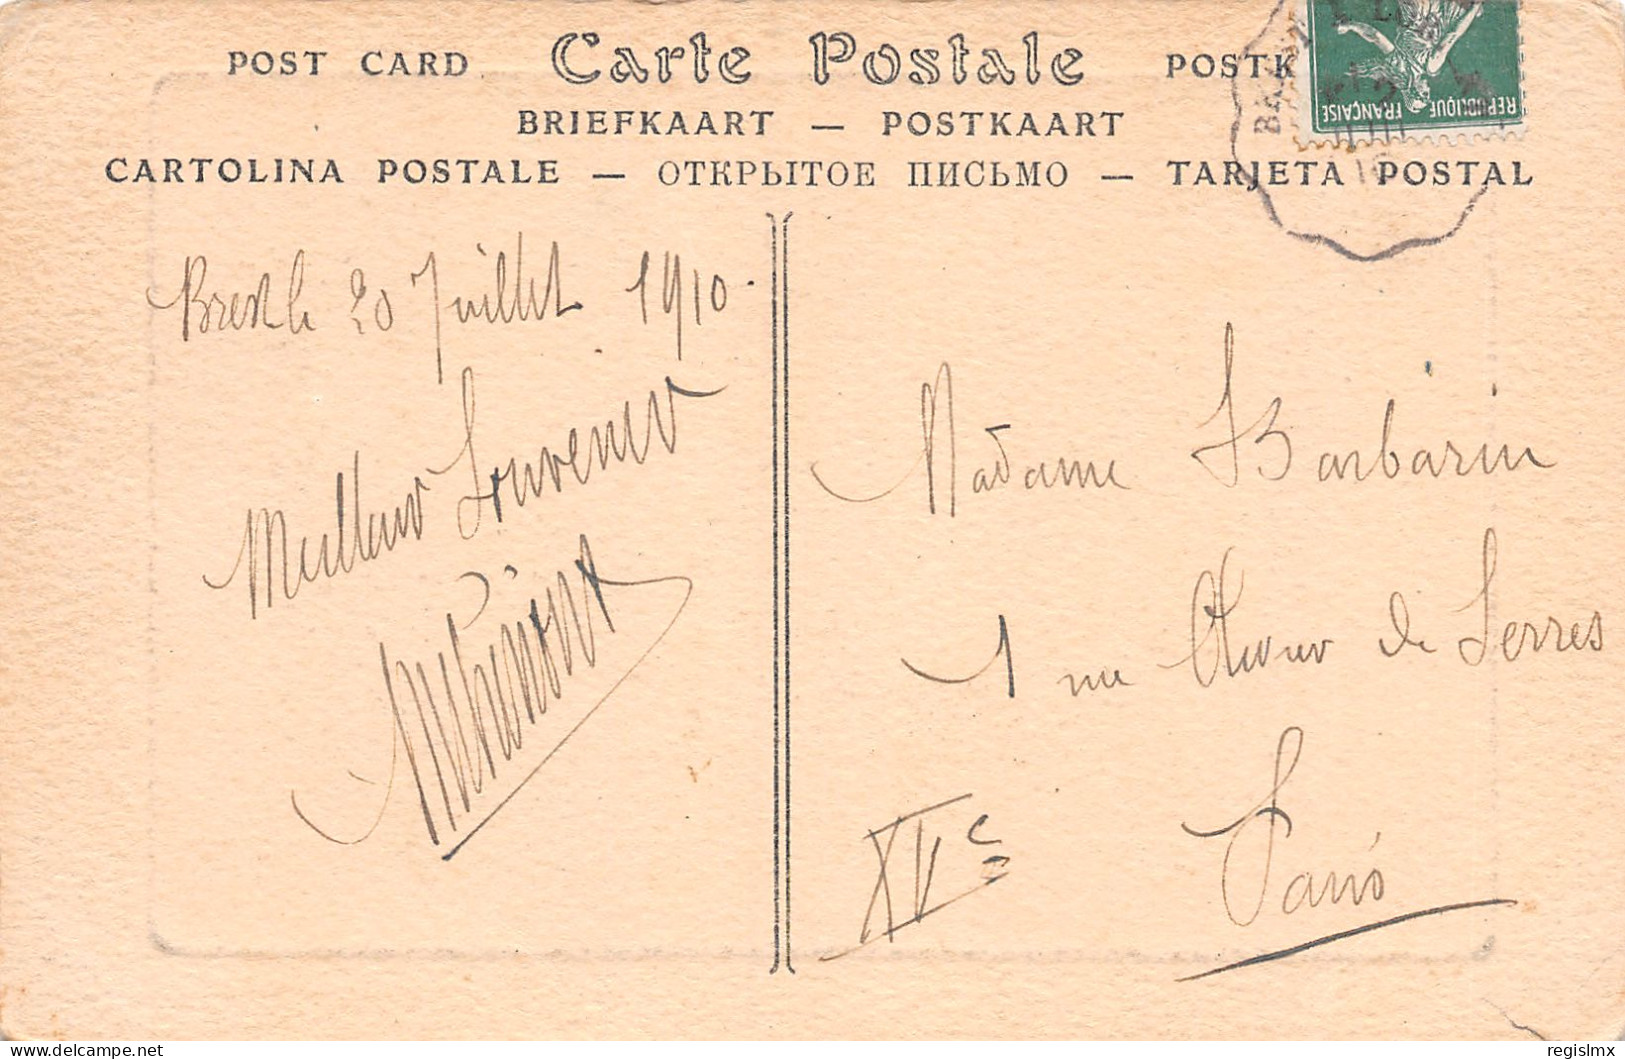 POST CARD Carte Postale POSTK
BRIEFKAART — POSTKAART
CARTOLINA POSTALE — ОТКРЫТОЕ ПИСЬМО — TARJETA POSTAL
REPUBLIQUE FRANÇAISE
le 20 Juillet 1910.
Meilleur Souvenir
Madame Barbarin
1 rue Olivier de Serres
Paris
XVe
delcampe.net
regislmx